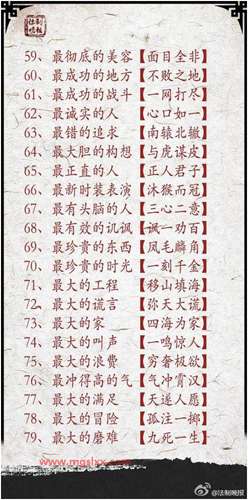 59、最彻底的美容【面目全非】
60、最成功的地方【不败之地】
61、最成功的战斗【一网打尽】
62、最诚实的人【心口如一】
63、最错的追求【南辕北辙】
64、最大胆的构想【与虎谋皮】
65、最正直的人【正人君子】
66、最新时装表演【沐猴而冠】
67、最有头脑的人【三心二意】
68、最有效的讥讽【诫一功百】
69、最珍贵的东西【凤毛麟角】
70、最珍贵的时光【一刻千金】
71、最大的工程【移山填海】
72、最大的谎言【弥天大谎】
73、最大的家【四海为家】
74、最大的叫声【一鸣惊人】
75、最大的浪费【穷奢极欲】
76、最冲得高的气【气冲霄汉】
77、最大的满足【天遂人愿】
78、最大的冒险【孤注一掷】
79、最大的磨难【九死一生】
www.mgslxx.com
@法制晚报